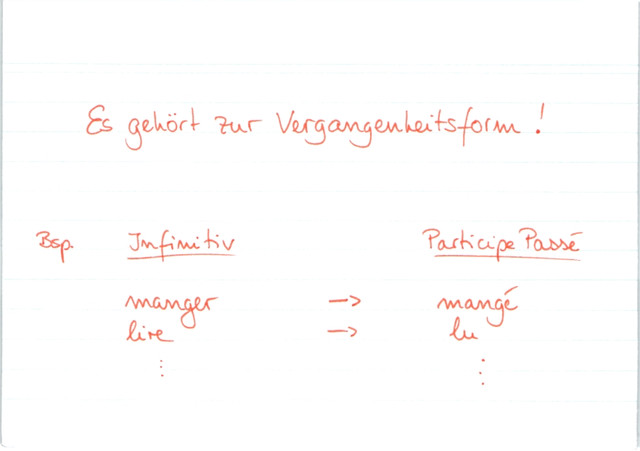 Es gehört zur Vergangenheitsform!
Bsp. Infinitiv Participe Passé
manger -> mangé
lire -> lu
⋮ ⋮